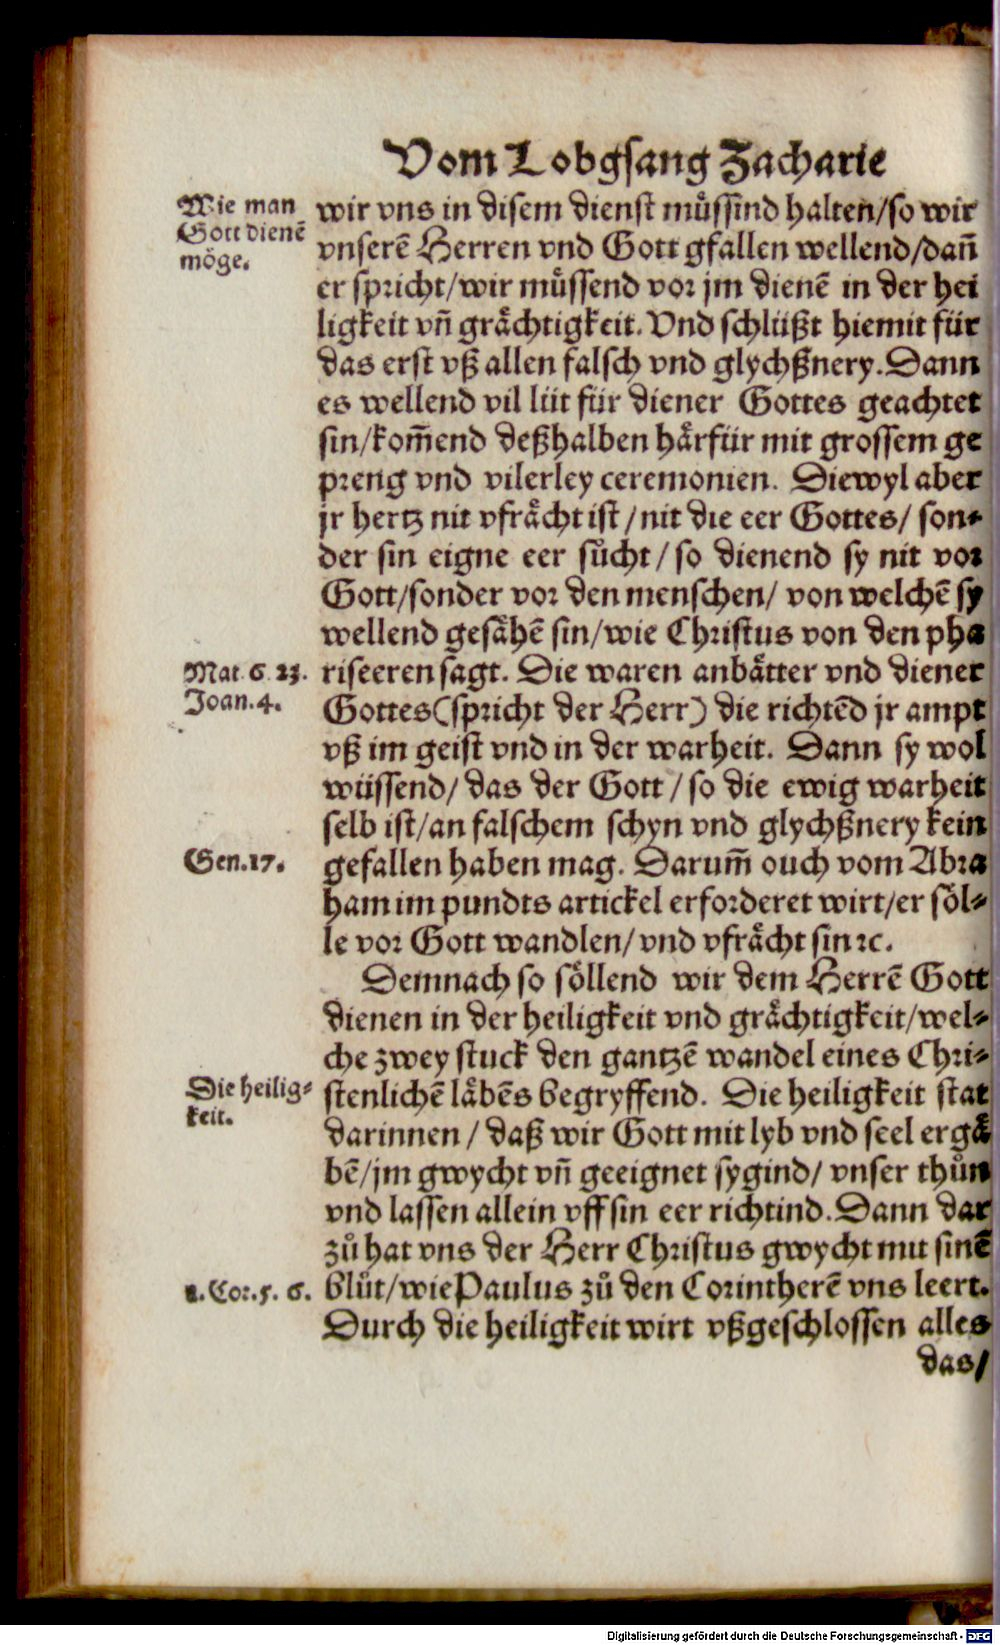 Vom Lobgsang Zacharie
Wie man
Gott dienē
möge.
wir vns in disem dienst muͤssind halten/so wir
vnserē Herren vnd Gott gfallen wellend/dañ
er spricht/wir muͤssend vor jm dienē in der hei
ligkeit vñ graͤchtigkeit. Vnd schlüßt hiemit für
das erst vß allen falsch vnd glychßnery. Dann
es wellend vil lüt für diener Gottes geachtet
sin/kom̄end deßhalben haͤrfür mit grossem ge
preng vnd vilerley ceremonien. Diewyl aber
jr hertz nit vfraͤcht ist/nit die eer Gottes/ son⸗
der sin eigne eer suͦcht/ so dienend sy nit vor
Gott/sonder vor den menschen/ von welchē sy
wellend gesaͤhē sin/wie Christus von den pha
Mat. 6. 23.
Joan. 4.
riseeren sagt. Die waren anbaͤtter vnd diener
Gottes(spricht der Herr) die richtēd jr ampt
vß im geist vnd in der warheit. Dann sy wol
wüssend/ das der Gott/ so die ewig warheit
selb ist/an falschem schyn vnd glychßnery kein
Gen. 17.
gefallen haben mag. Darum̄ ouch vom Abra
ham im pundts artickel erforderet wirt/er soͤl⸗
le vor Gott wandlen/ vnd vfraͤcht sin ꝛc.
Demnach so soͤllend wir dem Herrē Gott
dienen in der heiligkeit vnd graͤchtigkeit/wel⸗
che zwey stuck den gantzē wandel eines Chri⸗
Die heilig⸗
keit.
stenlichē laͤbēs begryffend. Die heiligkeit stat
darinnen/ daß wir Gott mit lyb vnd seel ergaͤ
bē/jm gwycht vñ geeignet sygind/ vnser thuͦn
vnd lassen allein vff sin eer richtind. Dann dar
zuͦ hat vns der Herr Christus gwycht mit sinē
1. Cor. 5. 6.
bluͦt/wie Paulus zuͦ den Corintherē vns leert.
Durch die heiligkeit wirt vßgeschlossen alles
das/
Digitalisierung gefördert durch die Deutsche Forschungsgemeinschaft - DFG